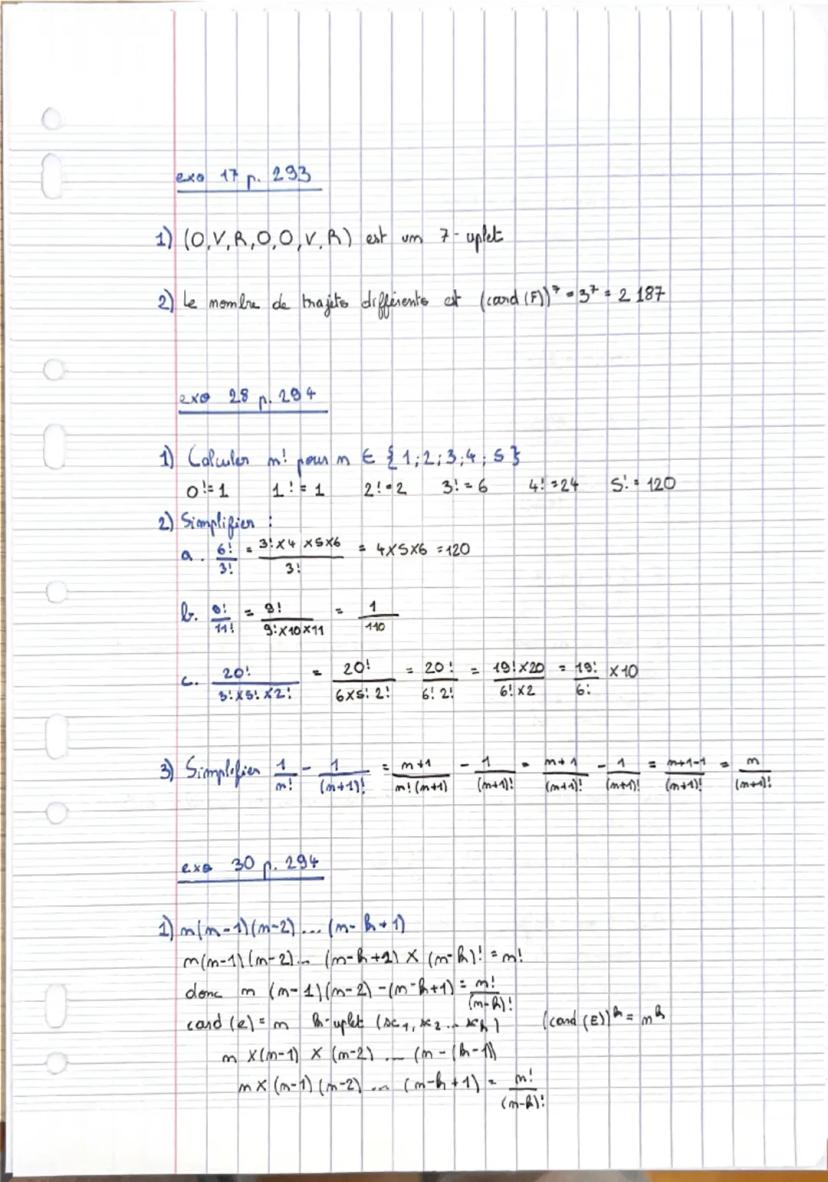 exo 17 p. 293
1) (O,V,R,O,O,V,R) est un 7-uplet
2) Le nombre de trajets différents est (card (F))⁷ = 3⁷ = 2 187
exo 28 p. 294
1) Calculer n! pour n ∈ {1;2;3;4;5}
0! = 1 1! = 1 2! = 2 3! = 6 4! = 24 5! = 120
2) Simplifier :
a. 6!/3! = 3!×4×5×6/3! = 4×5×6 = 120
b. 9!/11! = 9!/9!×10×11 = 1/110
c. 20!/3!×5!×2! = 20!/6×5!2! = 20!/6!2! = 19!×20/6!×2 = 19!/6! ×10
3) Simplifier 1/n! - 1/(n+1)! = n+1/n!(n+1) - 1/(n+1)! = n+1/(n+1)! - 1/(n+1)! = n+1-1/(n+1)! = n/(n+1)!
exo 30 p. 294
1) n(n-1)(n-2)...(n-k+1)
n(n-1)(n-2)... (n-k+1) × (n-k)! = n!
donc n (n-1)(n-2) -(n-k+1) = n!/(n-k)!
card (e) = n k-uplet (x₁, x₂... xₖ) (card (E))ᵏ = nᵏ
n ×(n-1) × (n-2) ... (n - (k-1))
n × (n-1) (n-2) ... (n-k+1) = n!/(n-k)!